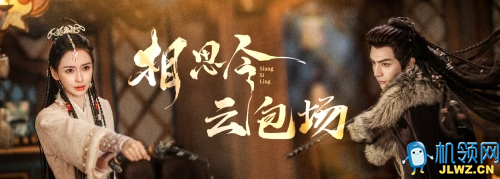 相思令
Xiang
Si
Ling
云包场
机领网
JLWZ.CN